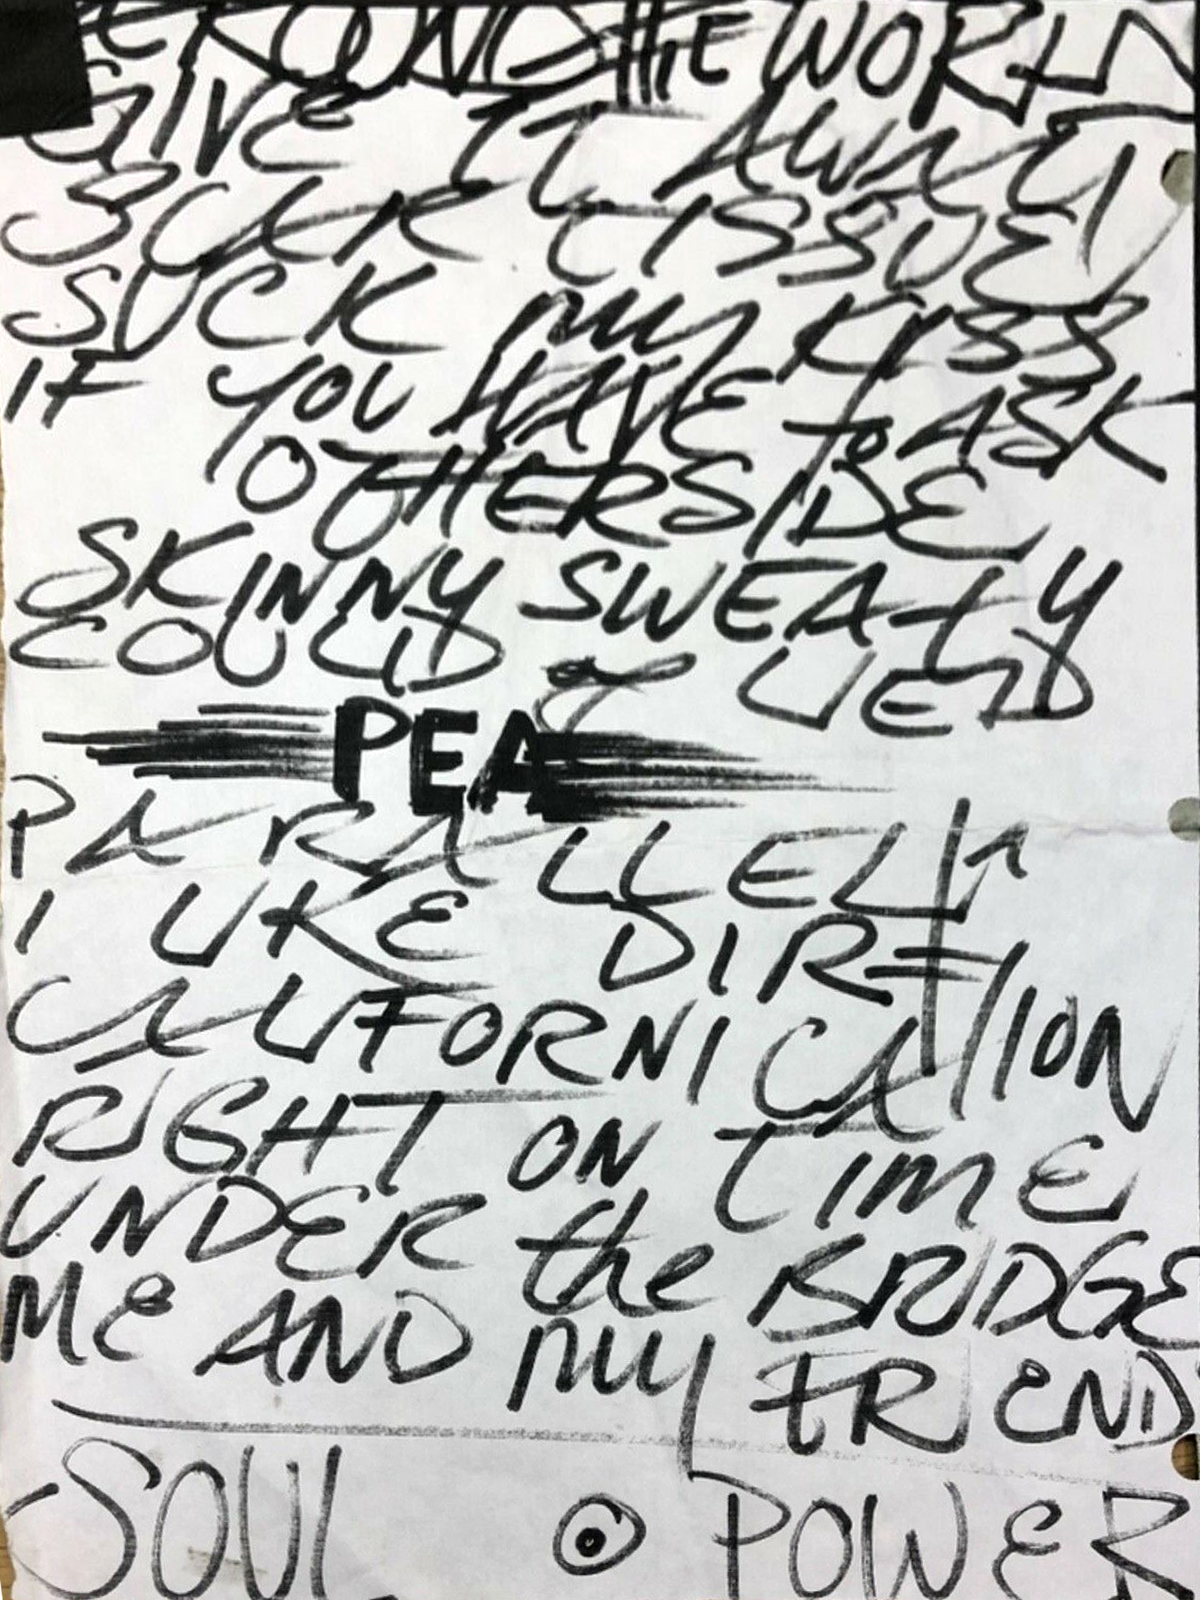 AROUND THE WORLD
GIVE IT AWAY
SCAR TISSUE
SUCK MY KISS
IF YOU HAVE to ASK
OTHERSIDE
SKINNY SWEATY
COULD LIED
PEA
PARALLEL
I LIKE DIRT
CALIFORNICATION
RIGHT ON TIME
UNDER the BRIDGE
ME AND MY FRIENDS
SOUL POWER